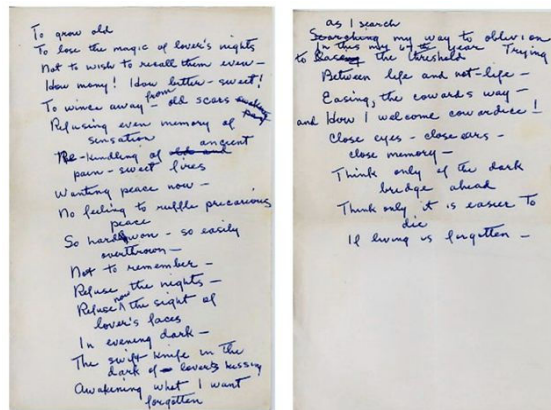 To grow old
To lose the magic of lover's nights
Not to wish to recall them even —
How many! How bitter-sweet!
To wince away from old scars
Refusing even memory of pain
sensation
Re-kindling of ancient
pain-sweet fires
Wanting peace now —
No feeling to ruffle precarious
peace
So hard won - so easily
overthrown —
Not to remember —
Refuse the nights —
Refuse now the sight of
lover's faces
In evening dark —
The swift knife in the
dark of lover's kissing
Awakening what I want
forgotten
as I search
Searching my way to oblivion
In this my 67th year Trying
to the threshold
Between life and not-life —
Easing, the coward's way —
and How I welcome cowardice!
Close eyes - close ears -
close memory —
Think only of the dark
bridge ahead
Think only it is easier to
die
If living is forgotten —